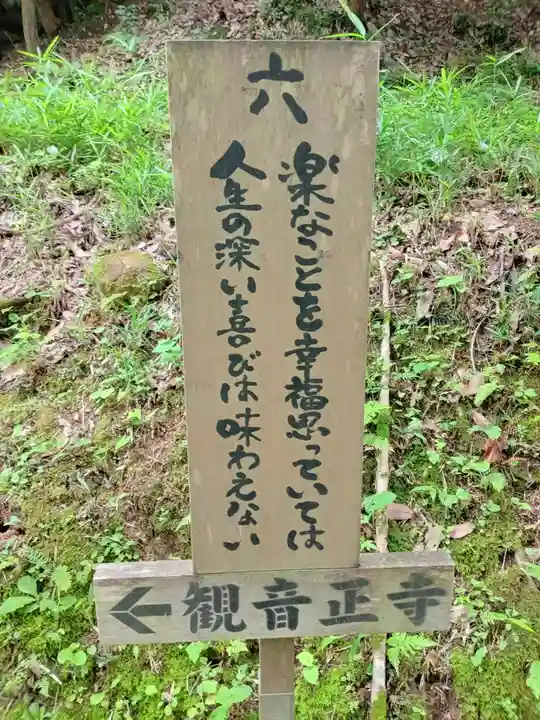 六
楽なことを幸福思っていては
人生の深い喜びは味わえない
←観音正寺